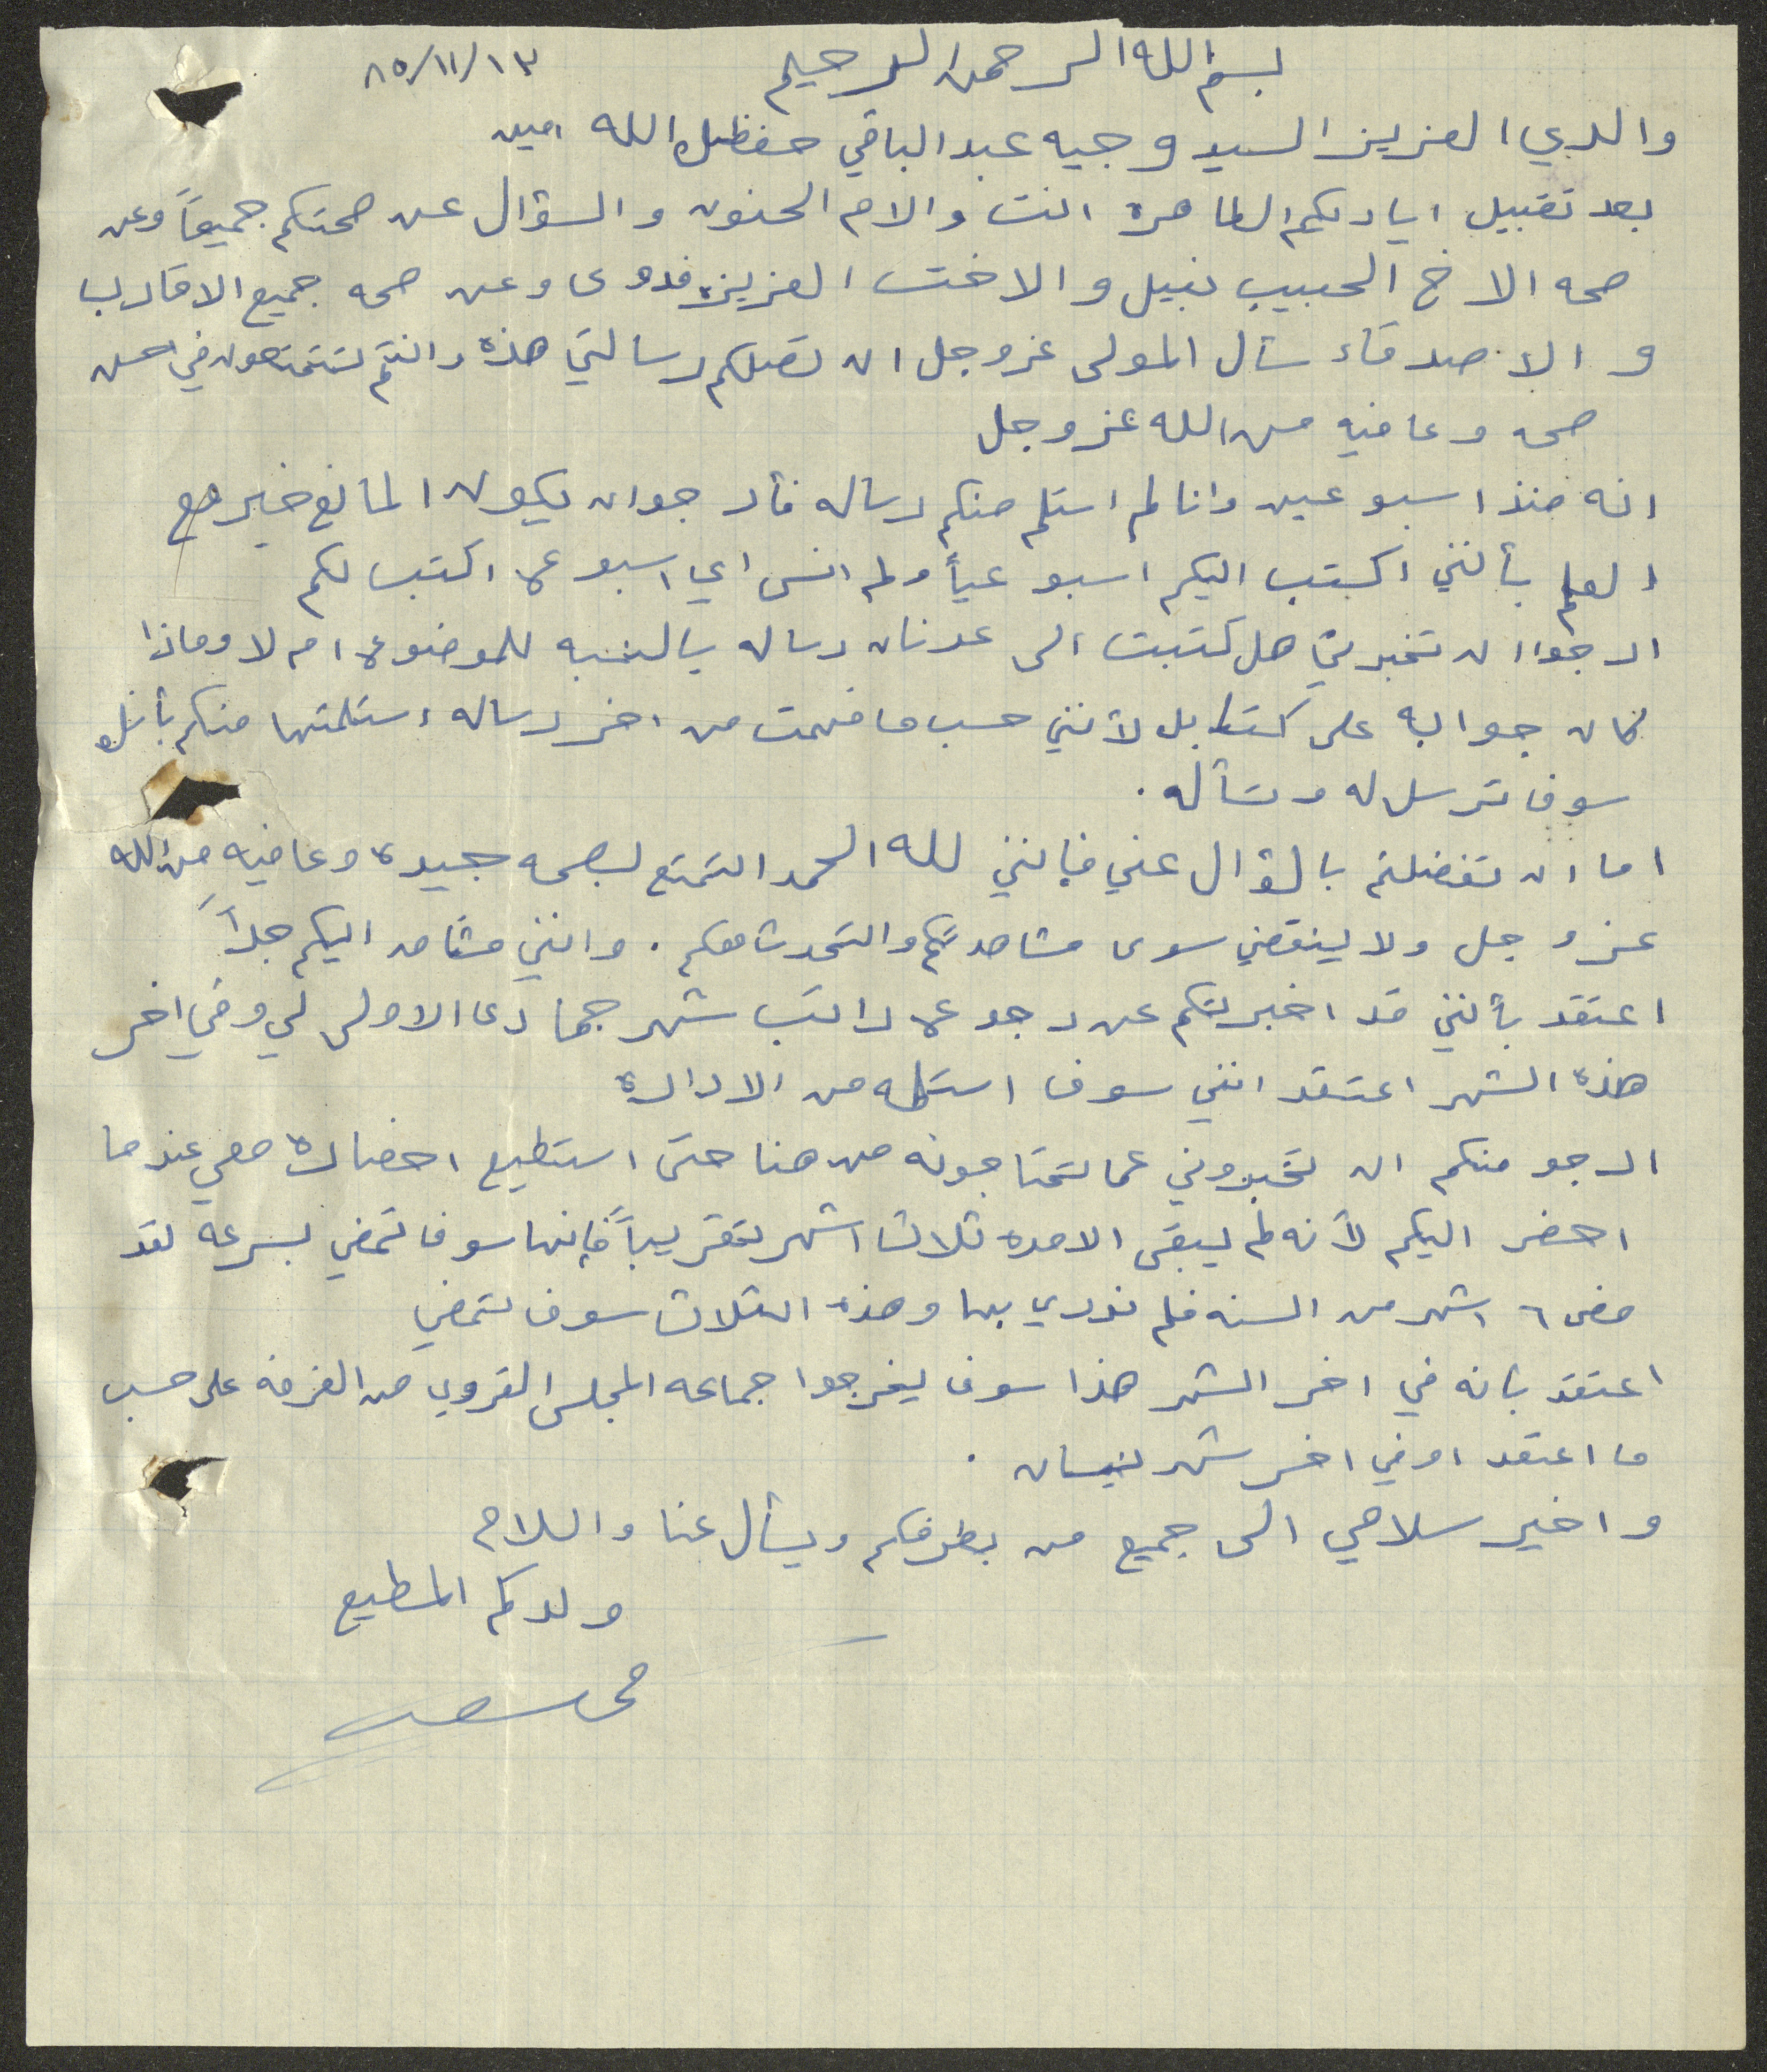 بسم الله الرحمن الرحيم ١٣/١١/٨٥
والدي العزيز السيد وجيه عبد الباقي حفظك الله امين
بعد تقبيل اياديكم الطاهره انت والام الحنون والسؤال عن صحتكم جميعاً وعن
صحه الاخ الحبيب نبيل والاخت العزيزه فدوى وعن صحه جميع الاقارب
و الاصدقاء سأل المولى عز وجل ان تصلكم رسالتي هذه وانتم تتمتعون في احسن
صحه وعافيه من الله عز وجل
انه منذ اسبوعين وانا لم استلم منكم رساله فأرجوان يكون المانع خير مع
العلم بأنني اكتب اليكم اسبوعياً ولم انسى اي اسبوع اكتب لكم
ارجوا ان تخبرني هل كتبت الى عدنان رساله بالنسبه للموضوع ام لا وماذا
كان جوابه على كتابك لأنني حسب ما فهمت من اخر رساله استلمتها منكم بأنك
سوف ترسل له وتسأله .
اما ان تفضلتم بالسؤال عني فإنني لله الحمد اتمتع بصحه جيده وعافيه من الله
عز وجل ولا ينقصني سوى مشاهدتكم والتحدث معكم . وانني مشتاق اليكم جداً
اعتقد بأنني قد اخبرتكم عن رجوع راتب شهر جمادى الاولى لي وفي اخر
هذه الشهر اعتقد انني سوف استلمه من الاداره
ارجو منكم ان تخبروني عما تحتاجونه من هنا حتى استطيع احضاره معي عندما
احضر اليكم لأنه لم يبقى الا مده ثلاث اشهر تقريباً فإنها سوف تمضي بسرعه لقد
مضى ٦ اشهر من السنه فلم ندري بها وهذه الثلاث سوف تمضي
اعتقد بانه في اخر الشهر هذا سوف يخرجوا جماعه المجلس القروي من الغرفه على حسب
ما اعتقد او في اخر شهر نيسان .
و اخير سلامي الى جميع من بطرفكم ويسأل عنا والسلام
ولدكم المطيع